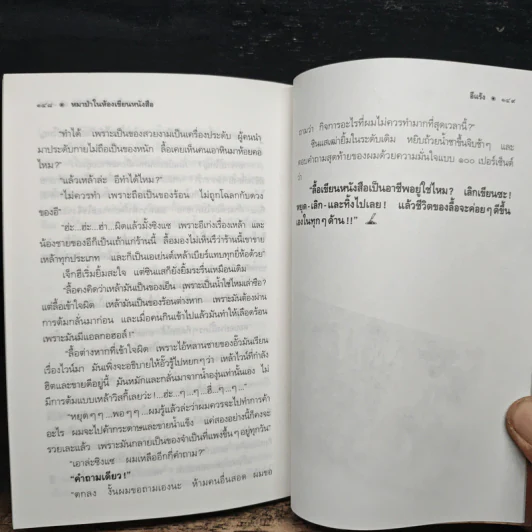 ๑๔๘ ๏ หมาบ้าในห้องเขียนหนังสือ
"ทำได้ เพราะเป็นของสวยงามเป็นเครื่องประดับ ผู้คนนำ
มาประดับกายไม่ถือเป็นของหนัก ลื้อเคยเห็นคนเอาหินมาห้อยคอ
ไหม?"
"แล้วเหล้าล่ะ อีทำได้ไหม?"
"ไม่ควรทำ เพราะถือเป็นของร้อน ไม่ถูกโฉลกกับดวง
ของอี"
"ฮ่ะ...ฮ่ะ...ฮ่า...ผิดแล้วมั้งซิงแซ เพราะอีเก่งเรื่องเหล้า และ
น้องชายของอีก็เป็นเถ้าแก่ร้านนี้ ลื้อมองไม่เห็นรึว่าร้านนี้เขาขาย
เหล้าทุกประเภท และก็เป็นเอเย่นต์เหล้าเบียร์แทบทุกยี่ห้อด้วย"
เจ็กฮี้เริ่มยิ้มสะใจ แต่ซินแสก็ยังยิ้มระรื่นเหมือนเดิม
"ลื้อคงคิดว่าเหล้ามันเป็นของเย็น เพราะเป็นน้ำใช่ไหมล่ะซือ?
แต่ลื้อเข้าใจผิด เหล้ามันเป็นของร้อนต่างหาก เพราะมันต้องผ่าน
การต้มกลั่นมาก่อน และเมื่อคนกินเข้าไปแล้วมันทำให้เลือดร้อน
เพราะมันมีแอลกอฮอล์!"
"ลื้อต่างหากที่เข้าใจผิด เพราะไอ้หลานชายของอั๊วมันเรียน
เรื่องไวน์มา มันเพิ่งจะอธิบายให้อั๊วรู้ไปหยกๆว่า เหล้าไวน์ที่กำลัง
ฮิตและขายดีอยู่นี้ มันหมักและกลั่นมาจากน้ำองุ่นเท่านั้นเอง ไม่
มีการต้มแบบเหล้าวิสกี้เลยว่ะ!...ฮ่ะ...ๆ...ๆ...ฮี่...ๆ...ๆ..."
"หยุดๆๆ...พอๆๆ...ผมรู้แล้วล่ะว่าผมควรจะไปทำการค้า
อะไร ผมจะไปค้ากระดาษและขายน้ำแข็ง แค่สองอย่างนี้ก็คงจะ
รวยเละแล้ว เพราะมันกลายเป็นของจำเป็นที่แพงขึ้นๆอยู่ทุกวัน"
"เอาล่ะซิงแซ ผมเหลืออีกกี่คำถาม?"
"คำถามเดียว!"
"ตกลง งั้นผมขอถามเองนะ ห้ามคนอื่นสอด ผมขอ
อีแร้ง ๏ ๑๔๙
ถามว่า กิจการอะไรที่ผมไม่ควรทำมากที่สุดเวลานี้?"
ซินแสเฒ่ายิ้มในระดับเดิม หยิบถ้วยน้ำชาขึ้นจิบช้าๆ และ
ตอบคำถามสุดท้ายของผมด้วยความมั่นใจแบบ ๑๐๐ เปอร์เซ็นต์
ว่า
"ลื้อเขียนหนังสือเป็นอาชีพอยู่ใช่ไหม? เลิกเขียนซะ!
หยุด-เลิก-และทิ้งไปเลย! แล้วชีวิตของลื้อจะค่อยๆดีขึ้น
เองในทุกๆด้าน!!"